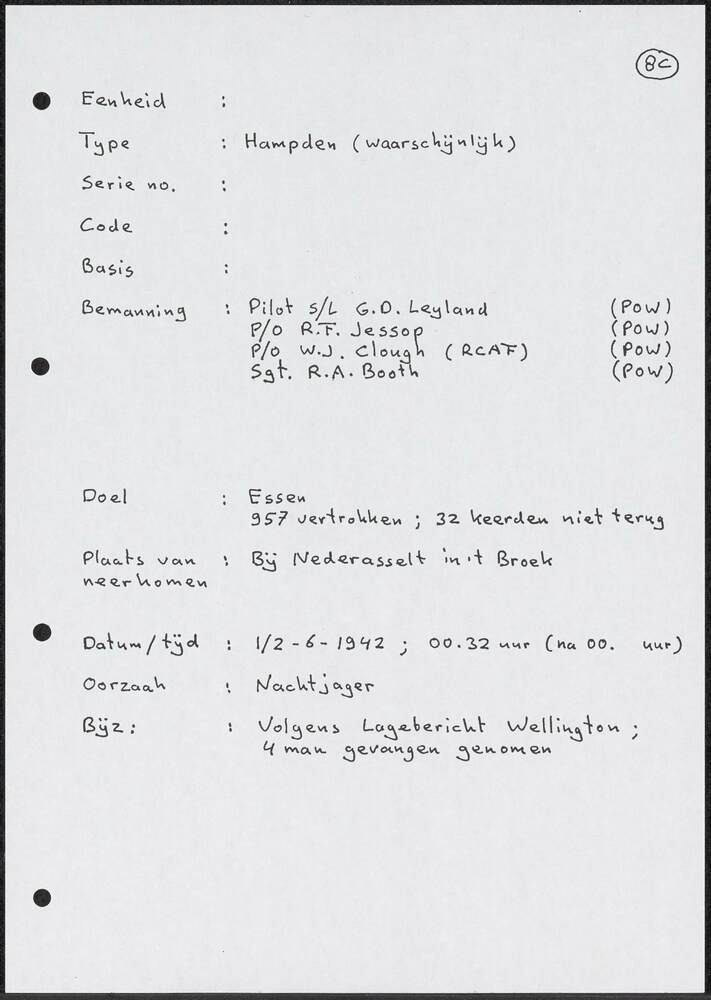 8C
Eenheid :
Type : Hampden (waarschijnlijk)
Serie no. :
Code :
Basis :
Bemanning : Pilot S/L G.D. Leyland (POW)
P/O R.F. Jessop (POW)
P/O W.J. Clough (RCAF) (POW)
Sgt. R.A. Booth (POW)
Doel : Essen
957 vertrokken ; 32 keerden niet terug
Plaats van : Bij Nederasselt in 't Broek
neerkomen
Datum/tijd : 1/2-6-1942 ; 00.32 uur (na 00. uur)
Oorzaak : Nachtjager
Bijz: : Volgens Lagebericht Wellington ;
4 man gevangen genomen